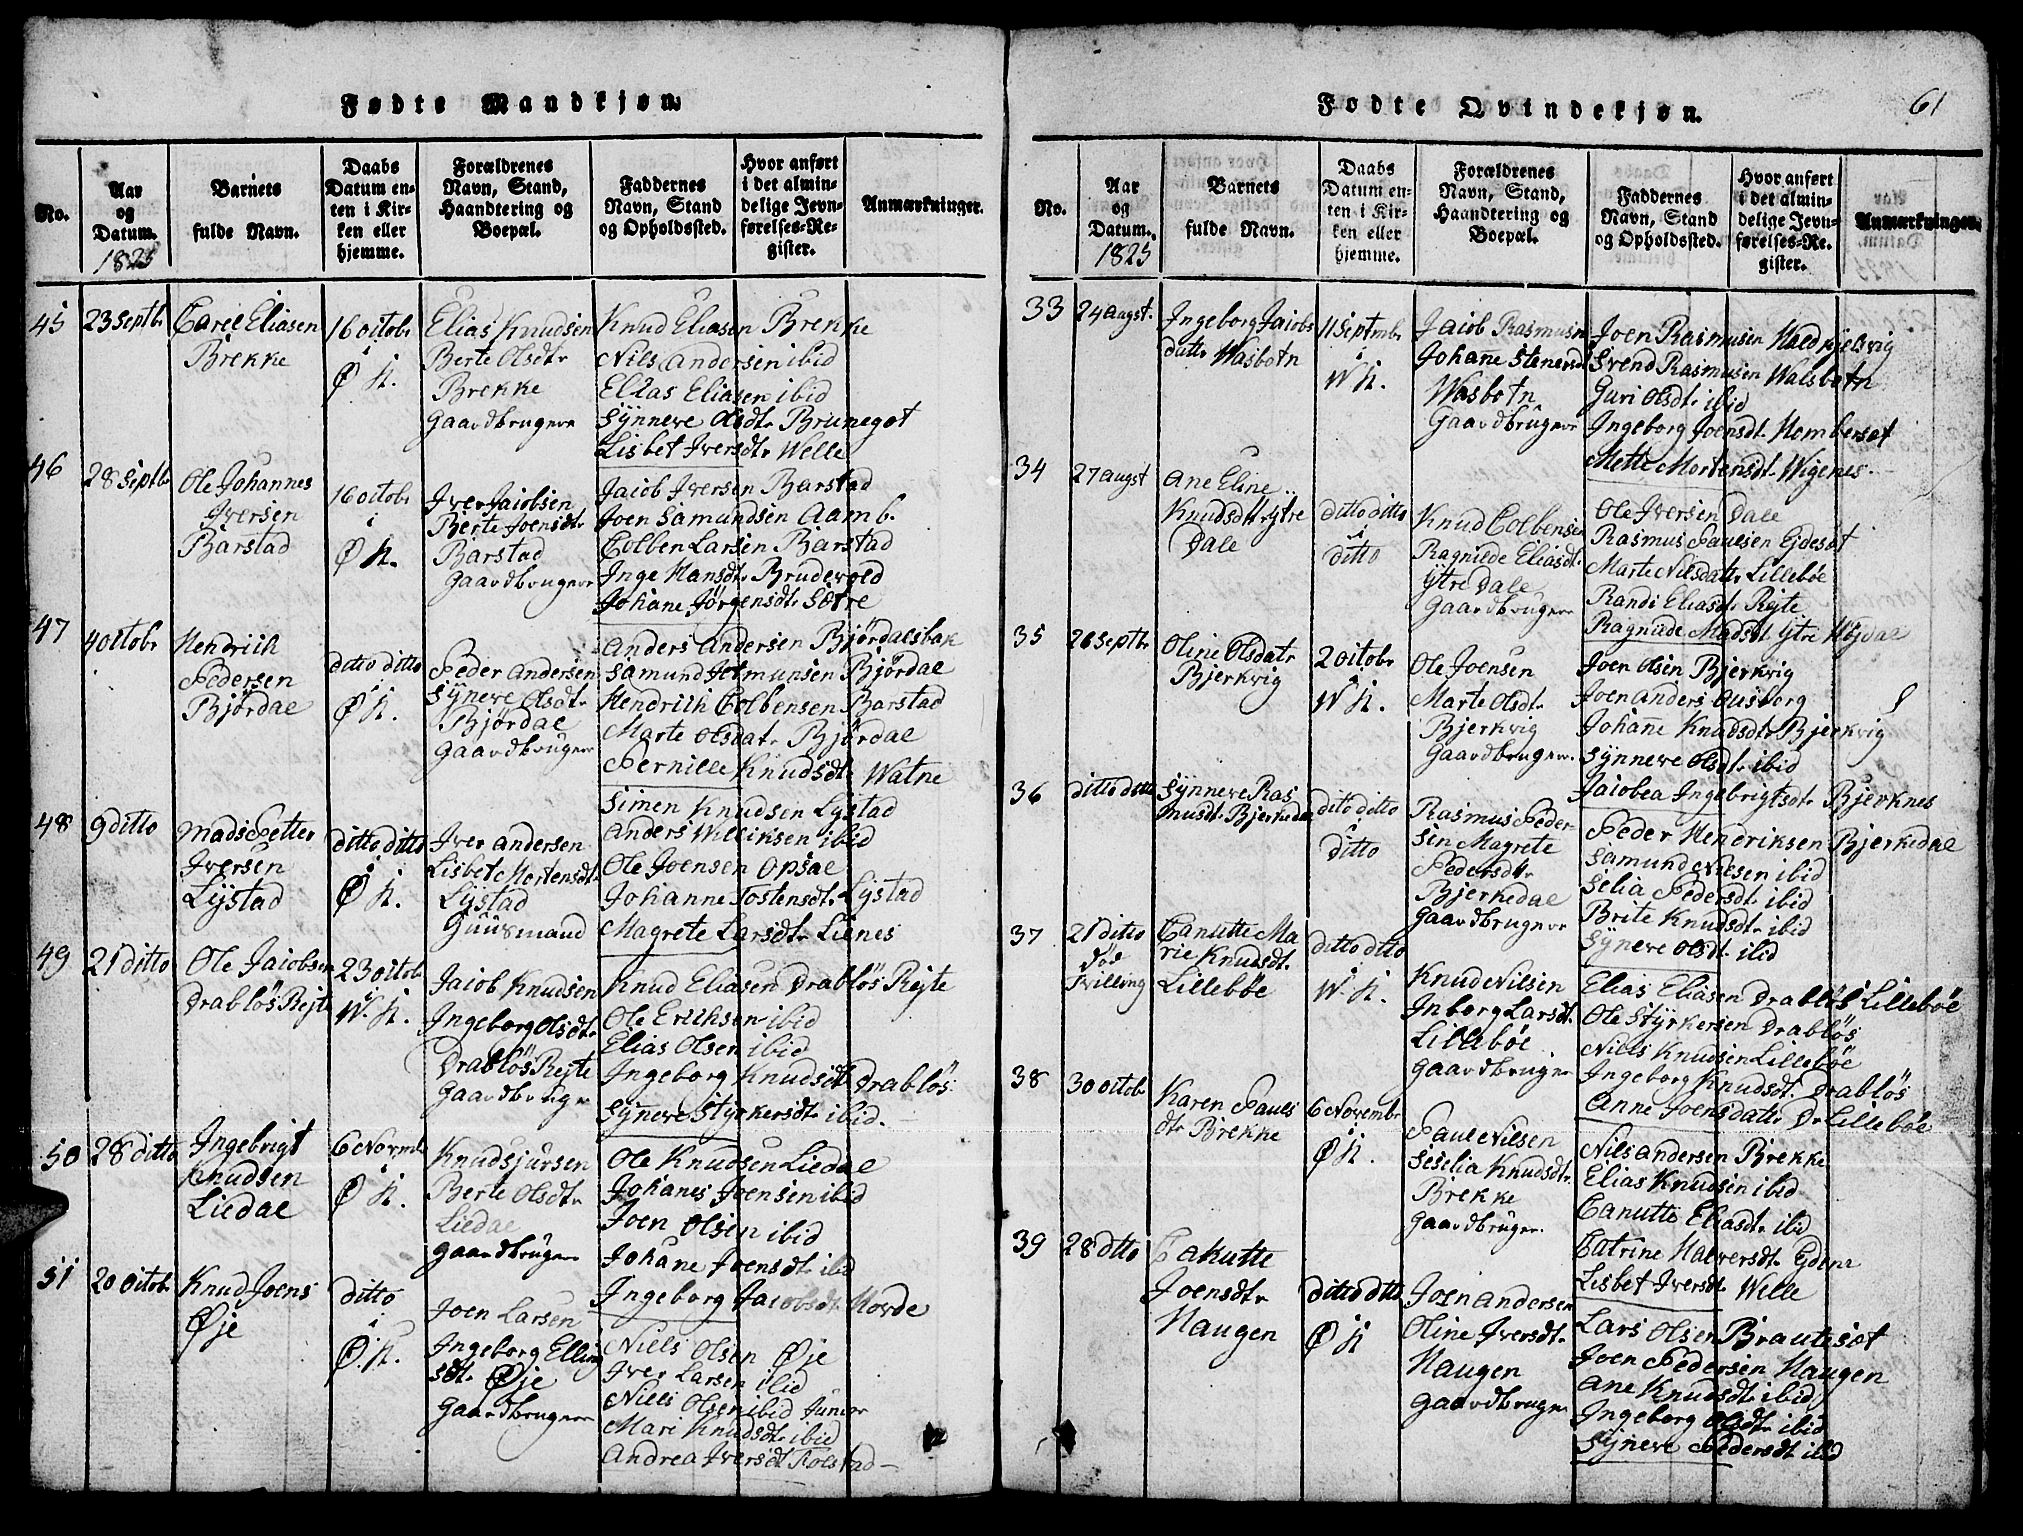 Fødte Mandkjøn.
No.
Aar
og
Datum.
1825
Barnets
fulde Navn.
Daabs
Datum en-
ten i Kir-
ken eller
hjemme.
Forældrenes
Navn, Stand,
Haandtering og
Boepæl.
Faddernes
Navn, Stand
og Opholdssted.
Hvor anført
i det almin-
delige Jevn-
førelses-Re-
gister.
Anmærkninger.
45
23 Septbr
Carel Eliasen
Brekke
16 octobr
i
Ø K.
Elias Knudsen
Berte Olsdtr
Brekke
Gaardbruger
Knud Eliasen Brekke
Nils Andersen ibid
Elias Eliasen ibid
Synneve Olsdtr Brunegot
Lisbet Iversdtr Welle
46
28 Septbr
Ole Johannes
Iversen
Barstad
16 octobr
i
Ø K.
Iver Jacobsen
Berte Joensdtr
Barstad
Gaardbruger
Jacob Iversen Barstad
Joen Samundsen Aamb.
Colben Larsen Barstad
Inge Hansdtr Brudevold
Johane Jørgensdtr Sætre
47
4 octobr
Hendrich
Pedersen
Bjørdal
ditto ditto
i
Ø K.
Peder Andersen
Synneve Olsdtr
Bjørdal
Gaardbruger
Anders Andersen Bjørdalsbak
Samund Jetmunsen Bjørdal
Hendrich Colbensen Barstad
Marte Olsdatr Bjørdal
Pernille Knudsdtr Watne
48
9 ditto
Mads Petter
Iversen
Lystad
ditto ditto
i
Ø K.
Iver Andersen
Lisbet Mortensdtr
Lystad
Huusmand
Simen Knudsen Lystad
Anders Williksen ibid
Ole Joensen Opsal
Johanne Tostensdtr Lystad
Magrete Larsdtr Lienes
49
21 ditto
Ole Jacobsen
Drabløs Rejte
23 octobr
i
W. K.
Jacob Knudsen
Ingeborg Olsdtr
Drabløs Rejte
Gaardbruger
Knud Eliasen Drabløs Rejte
Ole Erichsen ibid
Elias Olsen ibid
Ingeborg Knudsdtr Drabløs
Synneve Styrkersdtr ibid.
50
28 ditto
Ingebrigt
Knudsen
Liedal
6 Novmb
i
Ø K.
Knud Sjursen
Berte Olsdtr
Liedal
Gaardbruger
Ole Knudsen Liedal
Johanes Joensen ibid
Joen Olsen ibid
Johane Joensdtr ibid
Ingeborg Jacobsdtr Hovde
51
20 octobr
Knud Joens
Øje
ditto
i
Ø. K.
Joen Larsen
Ingeborg Elling
sdtr Øje
Gaardbruger
Niels Olsen Øje
Iver Larsen ibid
Niels Olsen ibid Junior
Mari Knudsdtr ibid
Andrea Iversdt Kolstad
Fødte Qvindekjøn.
61
No.
Aar
og
Datum.
1825
Barnets
fulde Navn.
Daabs
Datum en-
ten i Kir-
ken eller
hjemme.
Forældrenes
Navn, Stand,
Haandtering og
Boepæl.
Faddernes
Navn, Stand
og Opholdssted.
Hvor anført
i det almin-
delige Jevn-
førelses-Re-
gister.
Anmærkninger.
33
24 augst.
Ingeborg Jacobs
datr Wasbotn
11 Septmbr
i
W K.
Jacob Rasmusen
Johane Stenersd
Wasbotn
Gaardbruger
Joen Rasmusen Haldkjelsvig
Svend Rasmusen Walsbotn
Guri Olsdtr ibid
Ingeborg Joensdtr Homberset
Mette Mortensdtr Wigenes
34
27 augst
Ane Eline
Knudsdtr Ytre
Dale
ditto ditto
i
ditto
Knud Colbensen
Ragnilde Eliasdtr
Ytre Dale
Gaardbruger
Ole Iversen Dale
Rasmus Paulsen Ejdesøt
Marte Nilsdatr Lillebøe
Randi Eliasdtr Rejte
Ragnilde Madsdt Ytre Højdal
35
26 Septbr
Oline Olsdatr
Bjerkvig
2 octobr
i
W K.
Ole Joensen
Marte Olsdtr
Bjerkvig
Gaardbruger.
Joen Olsen Bjerkvig
Joen Anders Ausborg
Johane Knudsdtr Bjerkvig
Synneve Olsdtr ibid
Jacobea Ingebrigtsdtr Bjerknes
36
ditto ditto
Synneve Ras
musdtr Bjerkedal
ditto ditto
i
ditto
Rasmus Peder-
sen Magrete
Pedersdtr
Bjerkedal
Gaardbruger
Peder Hendriksen Bjerkedal
Samund Nilsen ibid
Selia Pedersdtr ibid
Brite Knudsdtr ibid
Synneve Olsdtr ibid
37
21 ditto
død
Tvilling
Canutte Ma
rie Knudsdtr
Lillebøe
ditto ditto
i
W. K.
Knud Nilsen
Inborg Larsdtr
Lillebøe
Gaardbruger
Elias Eliasen Drabløs Lillebøe
Ole Styrkersen Drabløs
Niels Knudsen Lillebøe
Ingeborg Knudsdtr Drabløs
Anne Joensdatr D. Lillebøe
38
30 octobr
Karen Pauls
dtr Brekke
6 Novembr
i
Ø K.
Paul Nilsen
Seselia Knudsdtr
Brekke
Gaardbruger.
Nils Andersen Brekke
Elias Knudsen ibid
Canutte Eliasdtr ibid
Catrine Halversdtr Ejdene
Lisbet Iversdtr Welle
39
28 dtto
Cakutte
Joensdtr
Haugen
ditto ditto
i
Ø K
Joen Andersen
Oline Iversdtr
Haugen
Gaardbruger
Lars Olsen Brautesøt
Joen Pedersen Haugen
Ane Knudsdtr ibid
Ingeborg Olsdtr ibid
Synneve Pedersdt ibid